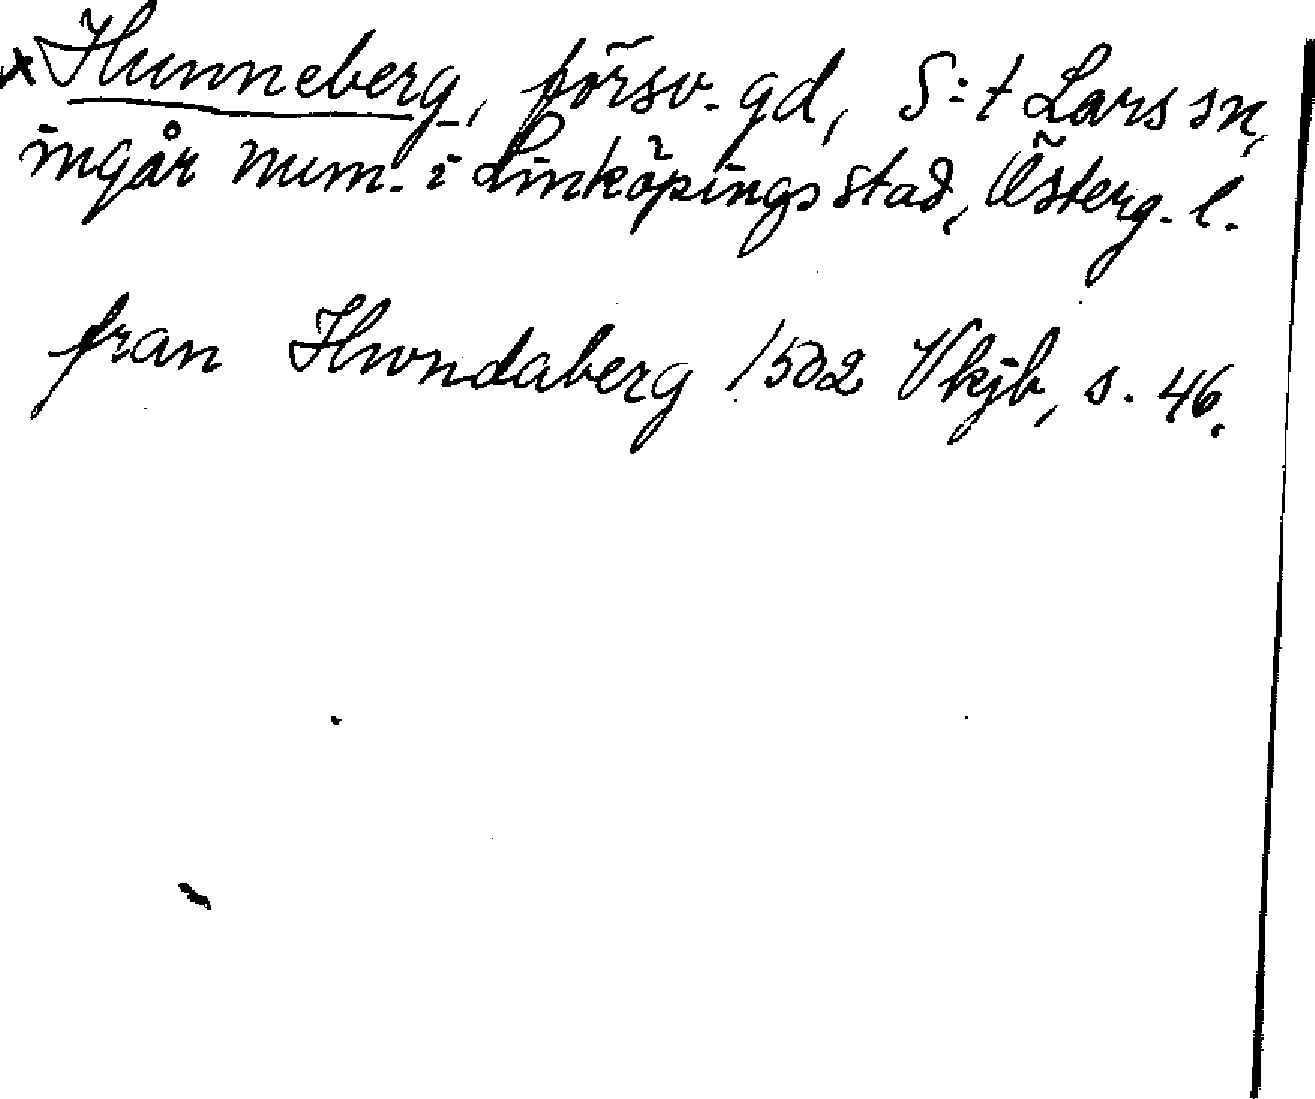 x Hunneberg, försv. gd, S:t Lars sn,
ingår num. i Linköpings stad, Österg. l.
fran Hwndaberg 1502 Vkjb, s. 46.